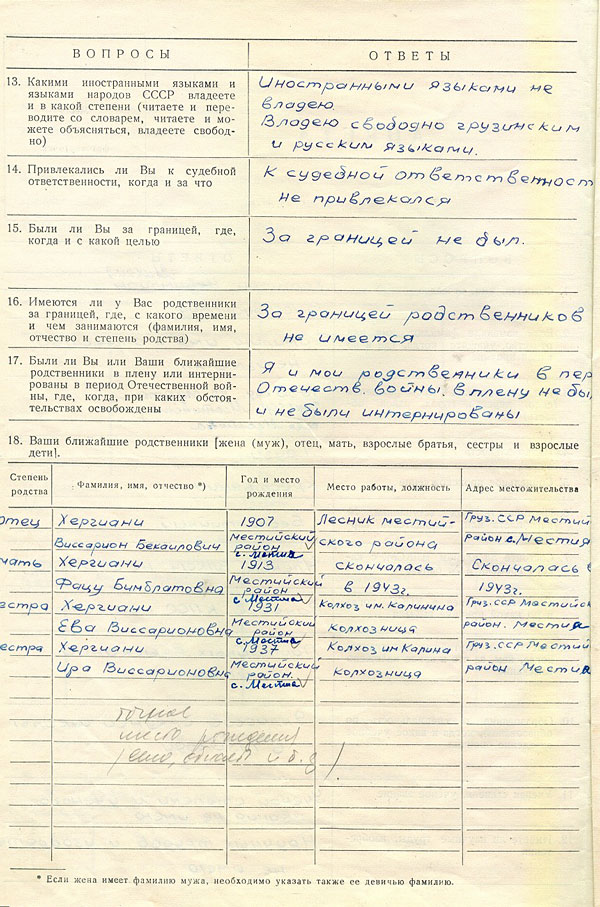 ВОПРОСЫ
ОТВЕТЫ
13. Какими иностранными языками и
языками народов СССР владеете
и в какой степени (читаете и пере-
водите со словарем, читаете и мо-
жете объясняться, владеете свобод-
но)
Иностранными языками не
владею.
Владею свободно грузинским
и русским языками.
14. Привлекались ли Вы к судебной
ответственности, когда и за что
К судебной ответственност
не привлекался
15. Были ли Вы за границей, где,
когда и с какой целью
За границей не был.
16. Имеются ли у Вас родственники
за границей, где, с какого времени
и чем занимаются (фамилия, имя,
отчество и степень родства)
За границей родственников
не имеется
17. Были ли Вы или Ваши ближайшие
родственники в плену или интерни-
рованы в период Отечественной вой-
ны, где, когда, при каких обстоя-
тельствах освобождены
Я и мои родственники в пер
Отечеств. войны. в плену не бы
и не были интернированы
18. Ваши ближайшие родственники [жена (муж), отец, мать, взрослые братья, сестры и взрослые
дети].
Степень
родства
Фамилия, имя, отчество *)
Год и место
рождения
Место работы, должность
Адрес местожительства
отец Хергиани 1907 Лесник местий- Груз. ССР Местии
Виссарион Бекаилович Местийский район с. Местиа ского района район с. Местия
мать Хергиани 1913 скончалась Скончалась в
Фацу Бимблатовна Местийский район с. Местиа в 1943г. 1943г.
естра Хергиани 1931 Колхоз им. Калинина Груз. ССР Местийск
Ева Виссарионовна Местийский район с. Местиа колхозница район. Местиа
естра Хергиани 1937 Колхоз им Калина Груз. ССР Местий
Ира Виссарионовна Местийский район. с. Местиа колхозница район Местиа
точное
место рождения
* Если жена имеет фамилию мужа, необходимо указать также ее девичью фамилию.